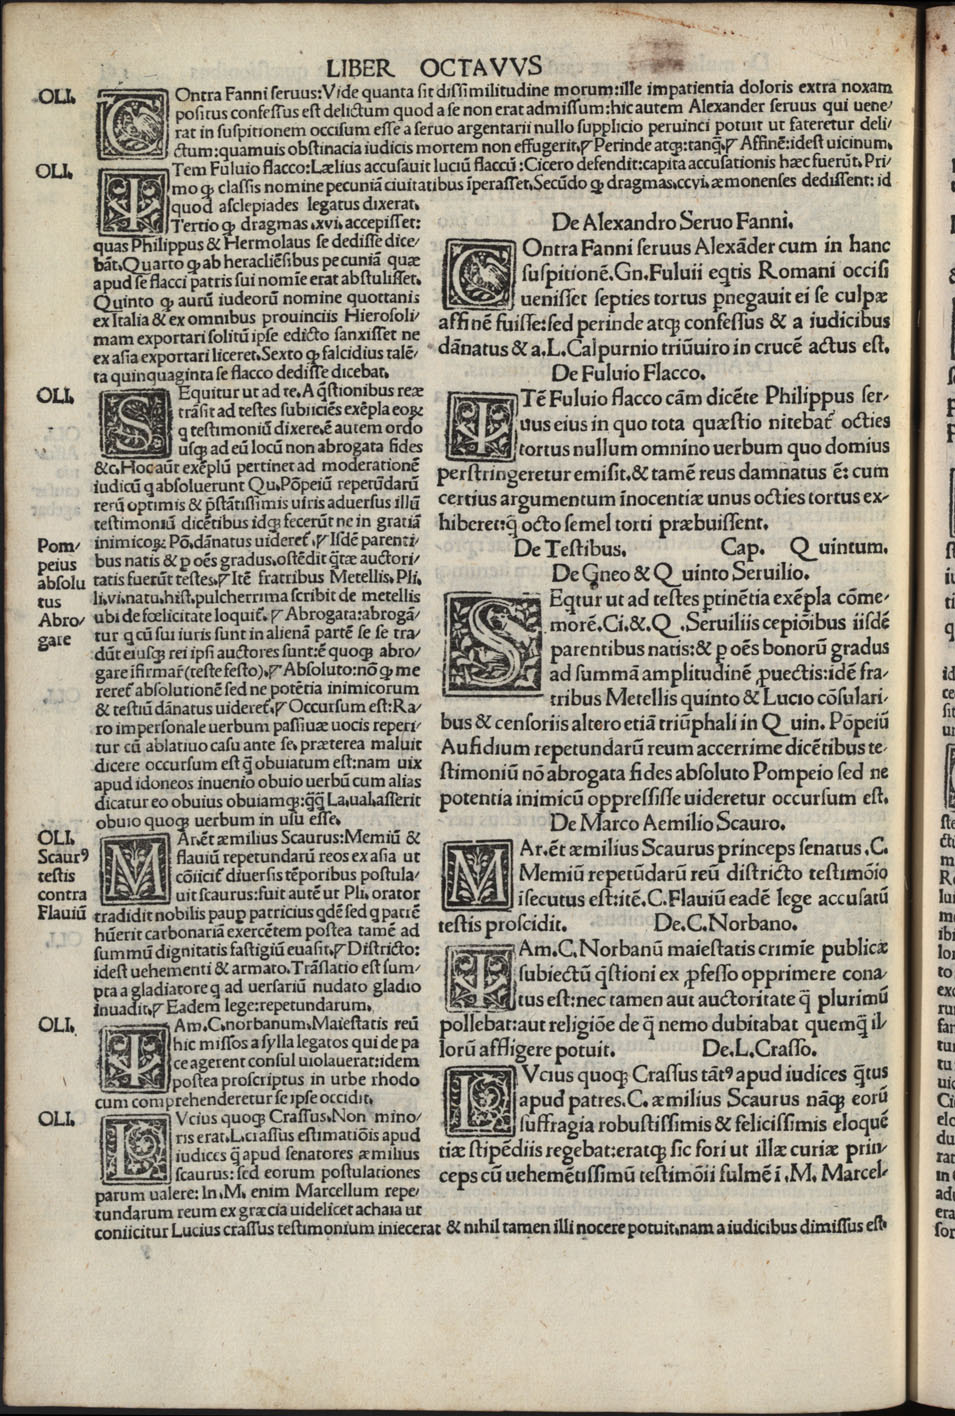 LIBER OCTAVVS
OLI.
COntra Fanni seruus: Vide quanta sit dissimilitudine morum: ille impatientia doloris extra noxam
positus confessus est delictum quod a se non erat admissum: hic autem Alexander seruus qui uene/
rat in suspitionem occisum esse a seruo argentarii nullo supplicio peruinci potuit ut fateretur deli/
ctum: quamuis obstinacia iudicis mortem non effugerit.¶ Perinde atqꝫ: tanq̃.¶ Affinẽ: idest uicinum.
OLI.
ITem Fuluio flacco: Lælius accusauit luciũ flaccũ: Cicero defendit: capita accusationis hæc fuerũt. Pri/
mo qꝫ classis nomine pecuniã ciuitatibus ĩperasset. Secũdo qꝫ dragmas.ccvi. æmonenses dedissent: id
quod asclepiades legatus dixerat.
Tertio qꝫ dragmas.xvi. accepisset:
quas Philippus & Hermolaus se dedisse dice/
bãt. Quarto qꝫ ab heracliẽsibus pecuniã quæ
apud se flacci patris sui nomĩe erat abstulisset.
Quinto qꝫ aurũ iudeorũ nomine quottanis
ex Italia & ex omnibus prouinciis Hierosoli/
mam exportari solitũ ipse edicto sanxisset ne
ex asia exportari liceret. Sexto qꝫ falcidius talẽ/
ta quinquaginta se flacco dedisse dicebat.
OLI.
SEquitur ut ad te. A q̃stionibus reæ
trãsit ad testes subiiciẽs exẽpla eoꝝ
q testimoniũ dixere. ẽ autem ordo
usqꝫ ad eũ locũ non abrogata fides
&c. Hoc aũt exẽplũ pertinet ad moderationẽ
iudicũ q absoluerunt Qu. Põpeiũ repetũdarũ
rerũ optimis & p̃stãtissimis uiris aduersus illũ
testimoniũ dicẽtibus idqꝫ fecerũt ne in gratiã
inimicoꝝ Põ. dãnatus uideret̃.¶ Isdẽ parenti/
bus natis & p oẽs gradus. ostẽdit q̃tæ auctori/
tatis fuerũt testes.¶ Itẽ fratribus Metellis. Pli.
li. vi. natu. hist. pulcherrima scribit de metellis
ubi de fœlicitate loquit̃.¶ Abrogata: abrogã/
tur q cũ sui iuris sunt in alienã partẽ se se tra/
dũt eiusqꝫ rei ipsi auctores sunt: ẽ quoqꝫ abro/
gare ĩfirmar̃ (teste festo).¶ Absoluto: nõ qꝫ me
reret̃ absolutionẽ sed ne potẽtia inimicorum
& testiũ dãnatus uideret̃.¶ Occursum est: Ra/
ro impersonale uerbum passiuæ uocis reperi/
tur cũ ablatiuo casu ante se. præterea maluit
dicere occursum est q̃ obuiatum est: nam uix
apud idoneos inuenio obuio uerbũ cum alias
dicatur eo obuius obuiamqꝫ: q̃q̃ La. ual. asserit
obuio quoqꝫ uerbum in usu esse.
Pom/
peius
absolu
tus
Abro/
gare
OLI.
Scaurꝰ
testis
contra
Flauiũ
MAr. ẽt æmilius Scaurus: Memiũ &
flauiũ repetundarũ reos ex asia ut
cõiicit̃ diuersis tẽporibus postula/
uit scaurus: fuit autẽ ut Pli. orator
tradidit nobilis paup patricius qdẽ sed q patrẽ
hũerit carbonariã exercẽtem postea tamẽ ad
summũ dignitatis fastigiũ euasit.¶ Districto:
idest uehementi & armato. Trãslatio est sum/
pta a gladiatore q ad uersariũ nudato gladio
inuadit.¶ Eadem lege: repetundarum.
OLI.
TAm. C. norbanum. Maiestatis reũ
hic missos a sylla legatos qui de pa
ce agerent consul uiolauerat: idem
postea proscriptus in urbe rhodo
cum comprehenderetur se ipse occidit.
OLI.
LVcius quoqꝫ Crassus. Non mino/
ris erat. L. crassus estimatiõis apud
iudices q̃ apud senatores æmilius
scaurus: sed eorum postulationes
parum ualere: In. M. enim Marcellum repe/
tundarum reum ex græcia uidelicet achaia ut
coniicitur Lucius crassus testimonium iniecerat & nihil tamen illi nocere potuit. nam a iudicibus dimissus est.
De Alexandro Seruo Fanni.
COntra Fanni seruus Alexãder cum in hanc
suspitionẽ. Gn. Fuluii eqtis Romani occisi
uenisset septies tortus pnegauit ei se culpæ
affinẽ fuisse: sed perinde atqꝫ confessus & a iudicibus
dãnatus & a. L. Calpurnio triũuiro in crucẽ actus est.
De Fuluio Flacco.
ITẽ Fuluio flacco cãm dicẽte Philippus ser/
uus eius in quo tota quæstio nitebat̃ octies
tortus nullum omnino uerbum quo domius
perstringeretur emisit. & tamẽ reus damnatus ẽ: cum
certius argumentum ĩnocentiæ unus octies tortus ex/
hiberet: q̃ octo semel torti præbuissent.
De Testibus. Cap. Quintum.
De Gneo & Quinto Seruilio.
SEqtur ut ad testes ptinẽtia exẽpla cõme/
morẽ. Ci. & Q. Seruiliis cepiõibus iisdẽ
parentibus natis: & p oẽs bonorũ gradus
ad summã amplitudinẽ ꝓuectis: idẽ fra/
tribus Metellis quinto & Lucio cõsulari/
bus & censoriis altero etiã triũphali in Quin. Põpeiũ
Aufidium repetundarũ reum accerrime dicẽtibus te/
stimoniũ nõ abrogata fides absoluto Pompeio sed ne
potentia inimicũ oppressisse uideretur occursum est.
De Marco Aemilio Scauro.
MAr. ẽt æmilius Scaurus princeps senatus. C.
Memiũ repetũdarũ reũ districto testimõio
ĩsecutus est: itẽ. C. Flauiũ eadẽ lege accusatũ
testis proscidit. De. C. Norbano.
TAm. C. Norbanũ maiestatis crimĩe publicæ
subiectũ q̃stioni ex ꝓfesso opprimere cona/
tus est: nec tamen aut auctoritate q̃ plurimũ
pollebat: aut religiõe de q̃ nemo dubitabat quemq̃ il/
lorũ affligere potuit. De. L. Crasso.
LVcius quoqꝫ Crassus tãtꝰ apud iudices q̃tus
apud patres. C. æmilius Scaurus nãqꝫ eorũ
suffragia robustissimis & felicissimis eloquẽ
tiæ stipẽdiis regebat: eratqꝫ sic fori ut illæ curiæ prin/
ceps cũ uehemẽtissimũ testimõii fulmẽ ĩ. M. Marcel/